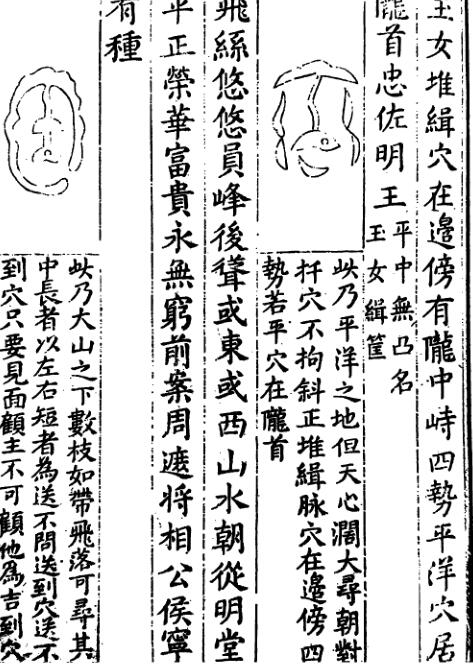 玉女堆緝穴在邊傍有隴中峙四勢平洋穴居
隴首忠佐明王平中無凸名
玉女緝筐
此乃平洋之地但天心濶大尋朝對
扦穴不拘斜正堆緝脉穴在邊傍四
勢若平穴在隴首
飛絲悠悠員峰後聳或東或西山水朝從明堂
平正榮華富貴永無窮前案周遮将相公侯寧
有種
此乃大山之下數枝如帶飛落可尋其
中長者以左右短者為送不問送到穴送不
到穴只要見面顧主不可顧他為吉到穴